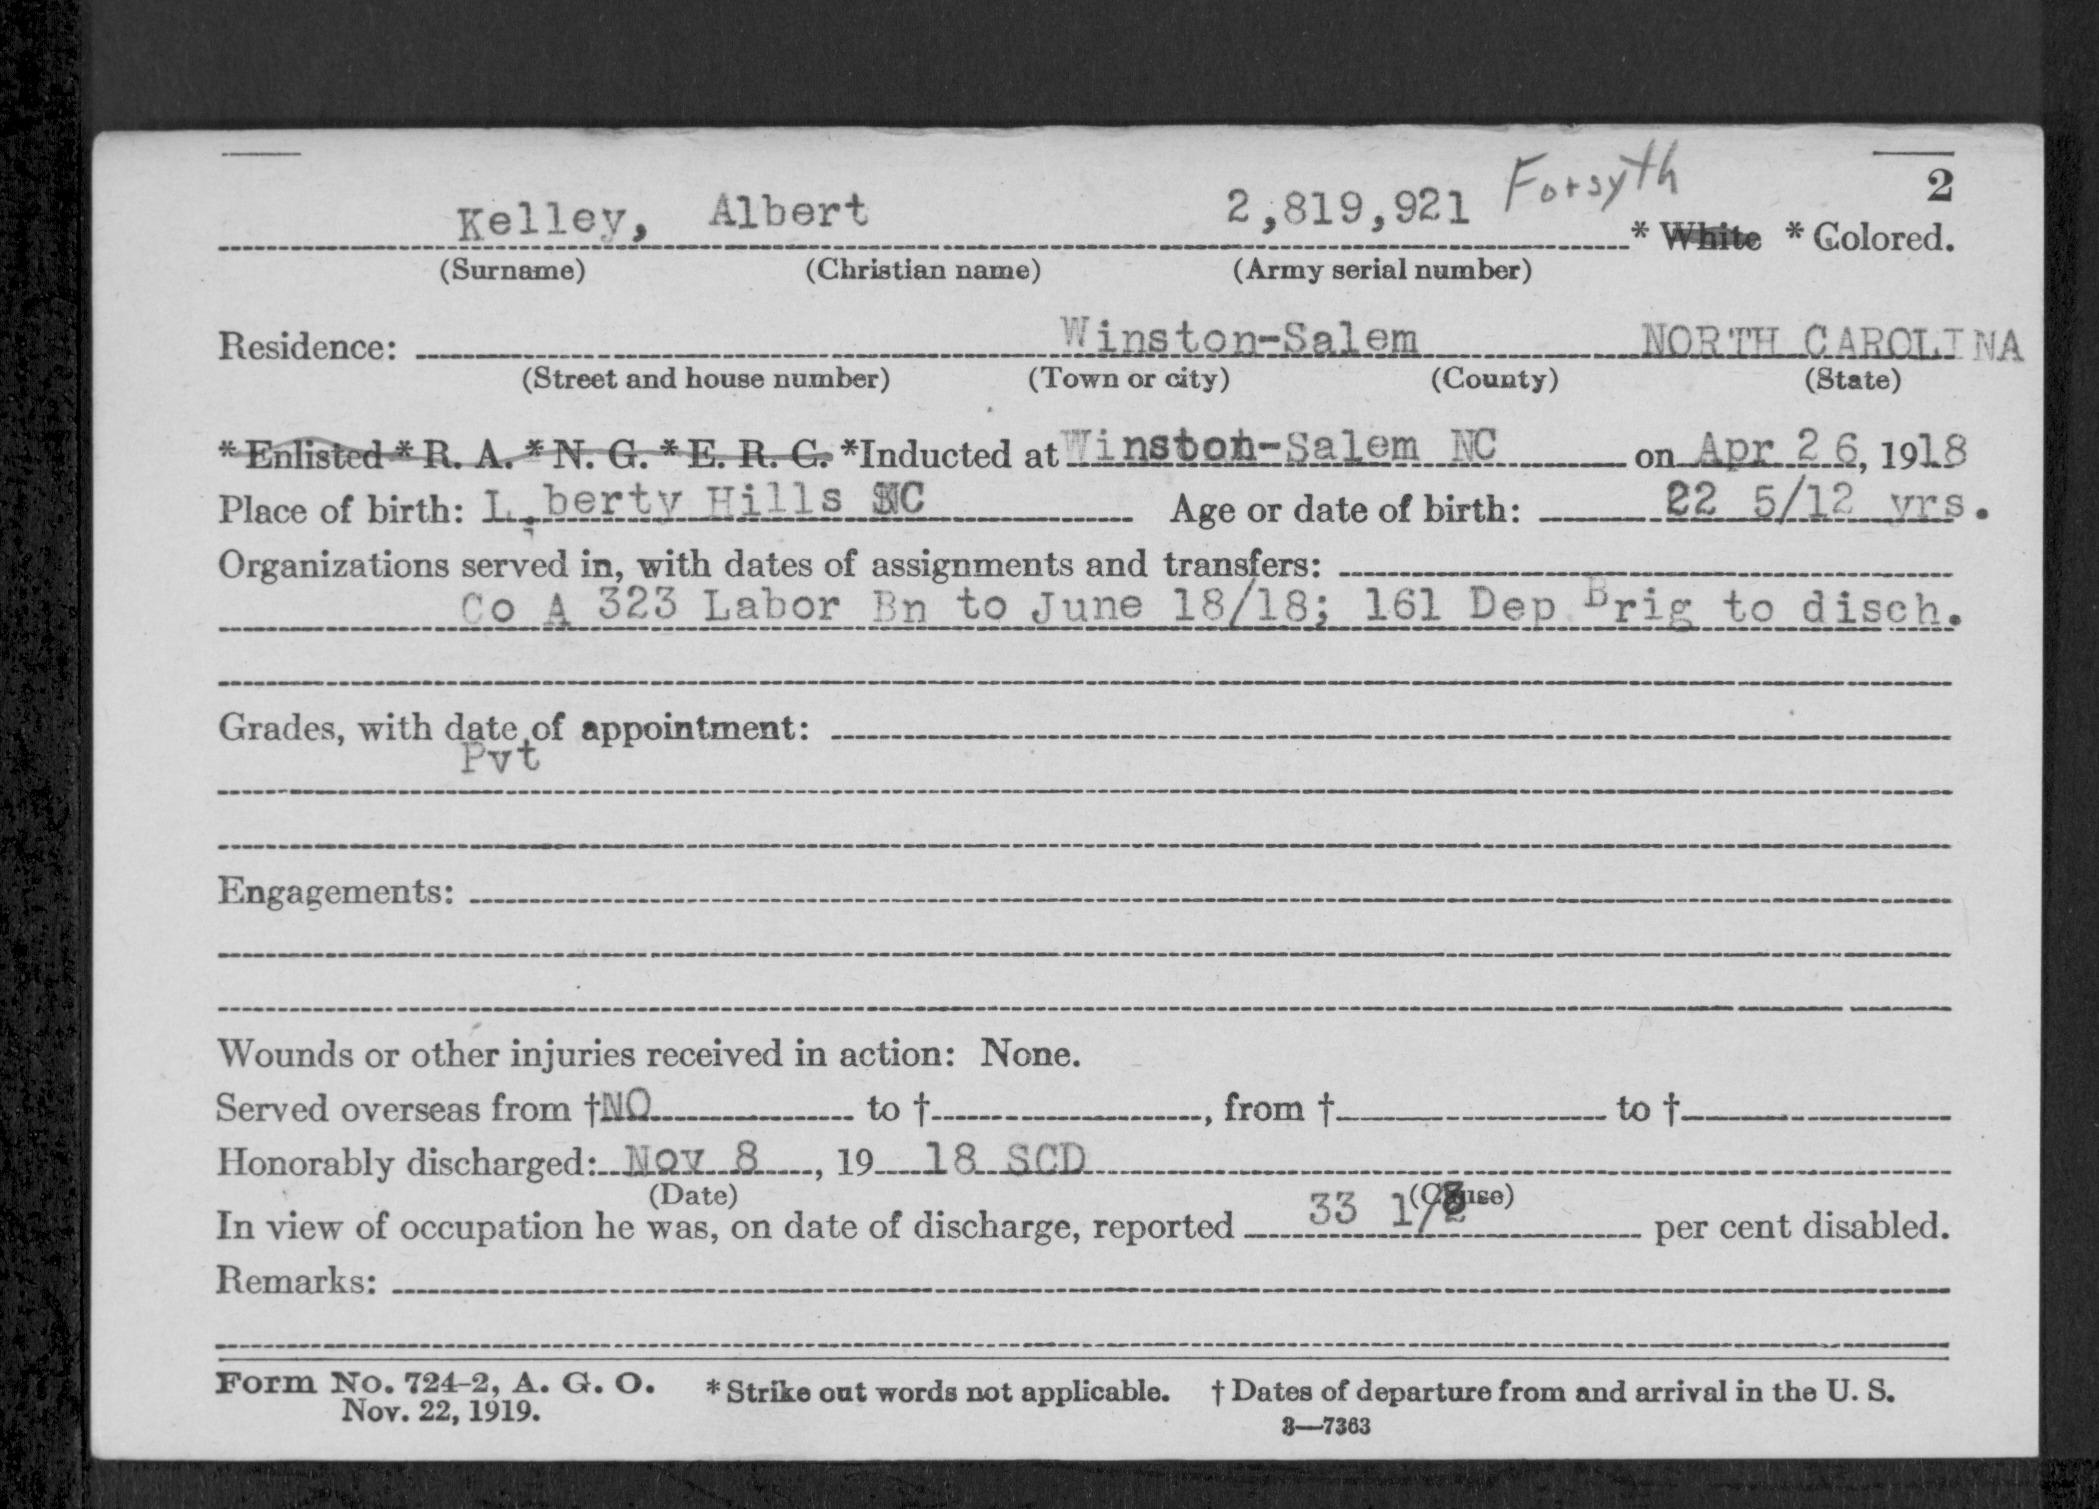 Forsyth
2
Kelley, Albert 2,819,921 * White * Colored.
(Surname) (Christian name) (Army serial number)
Residence: Winston-Salem NORTH CAROLINA
(Street and house number) (Town or city) (County) (State)
* Enlisted * R. A. * N. G. * E. R. C. *Inducted at Winston-Salem NC on Apr 26, 1918
Place of birth: L,berty Hills NC Age or date of birth: 22 5/12 yrs.
Organizations served in, with dates of assignments and transfers:
Co A 323 Labor Bn to June 18/18; 161 Dep Brig to disch.
Grades, with date of appointment:
Pvt
Engagements:
Wounds or other injuries received in action: None.
Served overseas from †NO to †, from † to †
Honorably discharged: Nov 8, 1918 SCD
(Date) (Cause)
In view of occupation he was, on date of discharge, reported 33 1/3 per cent disabled.
Remarks:
Form No. 724-2, A. G. O. * Strike out words not applicable. † Dates of departure from and arrival in the U. S.
Nov. 22, 1919. 3—7363